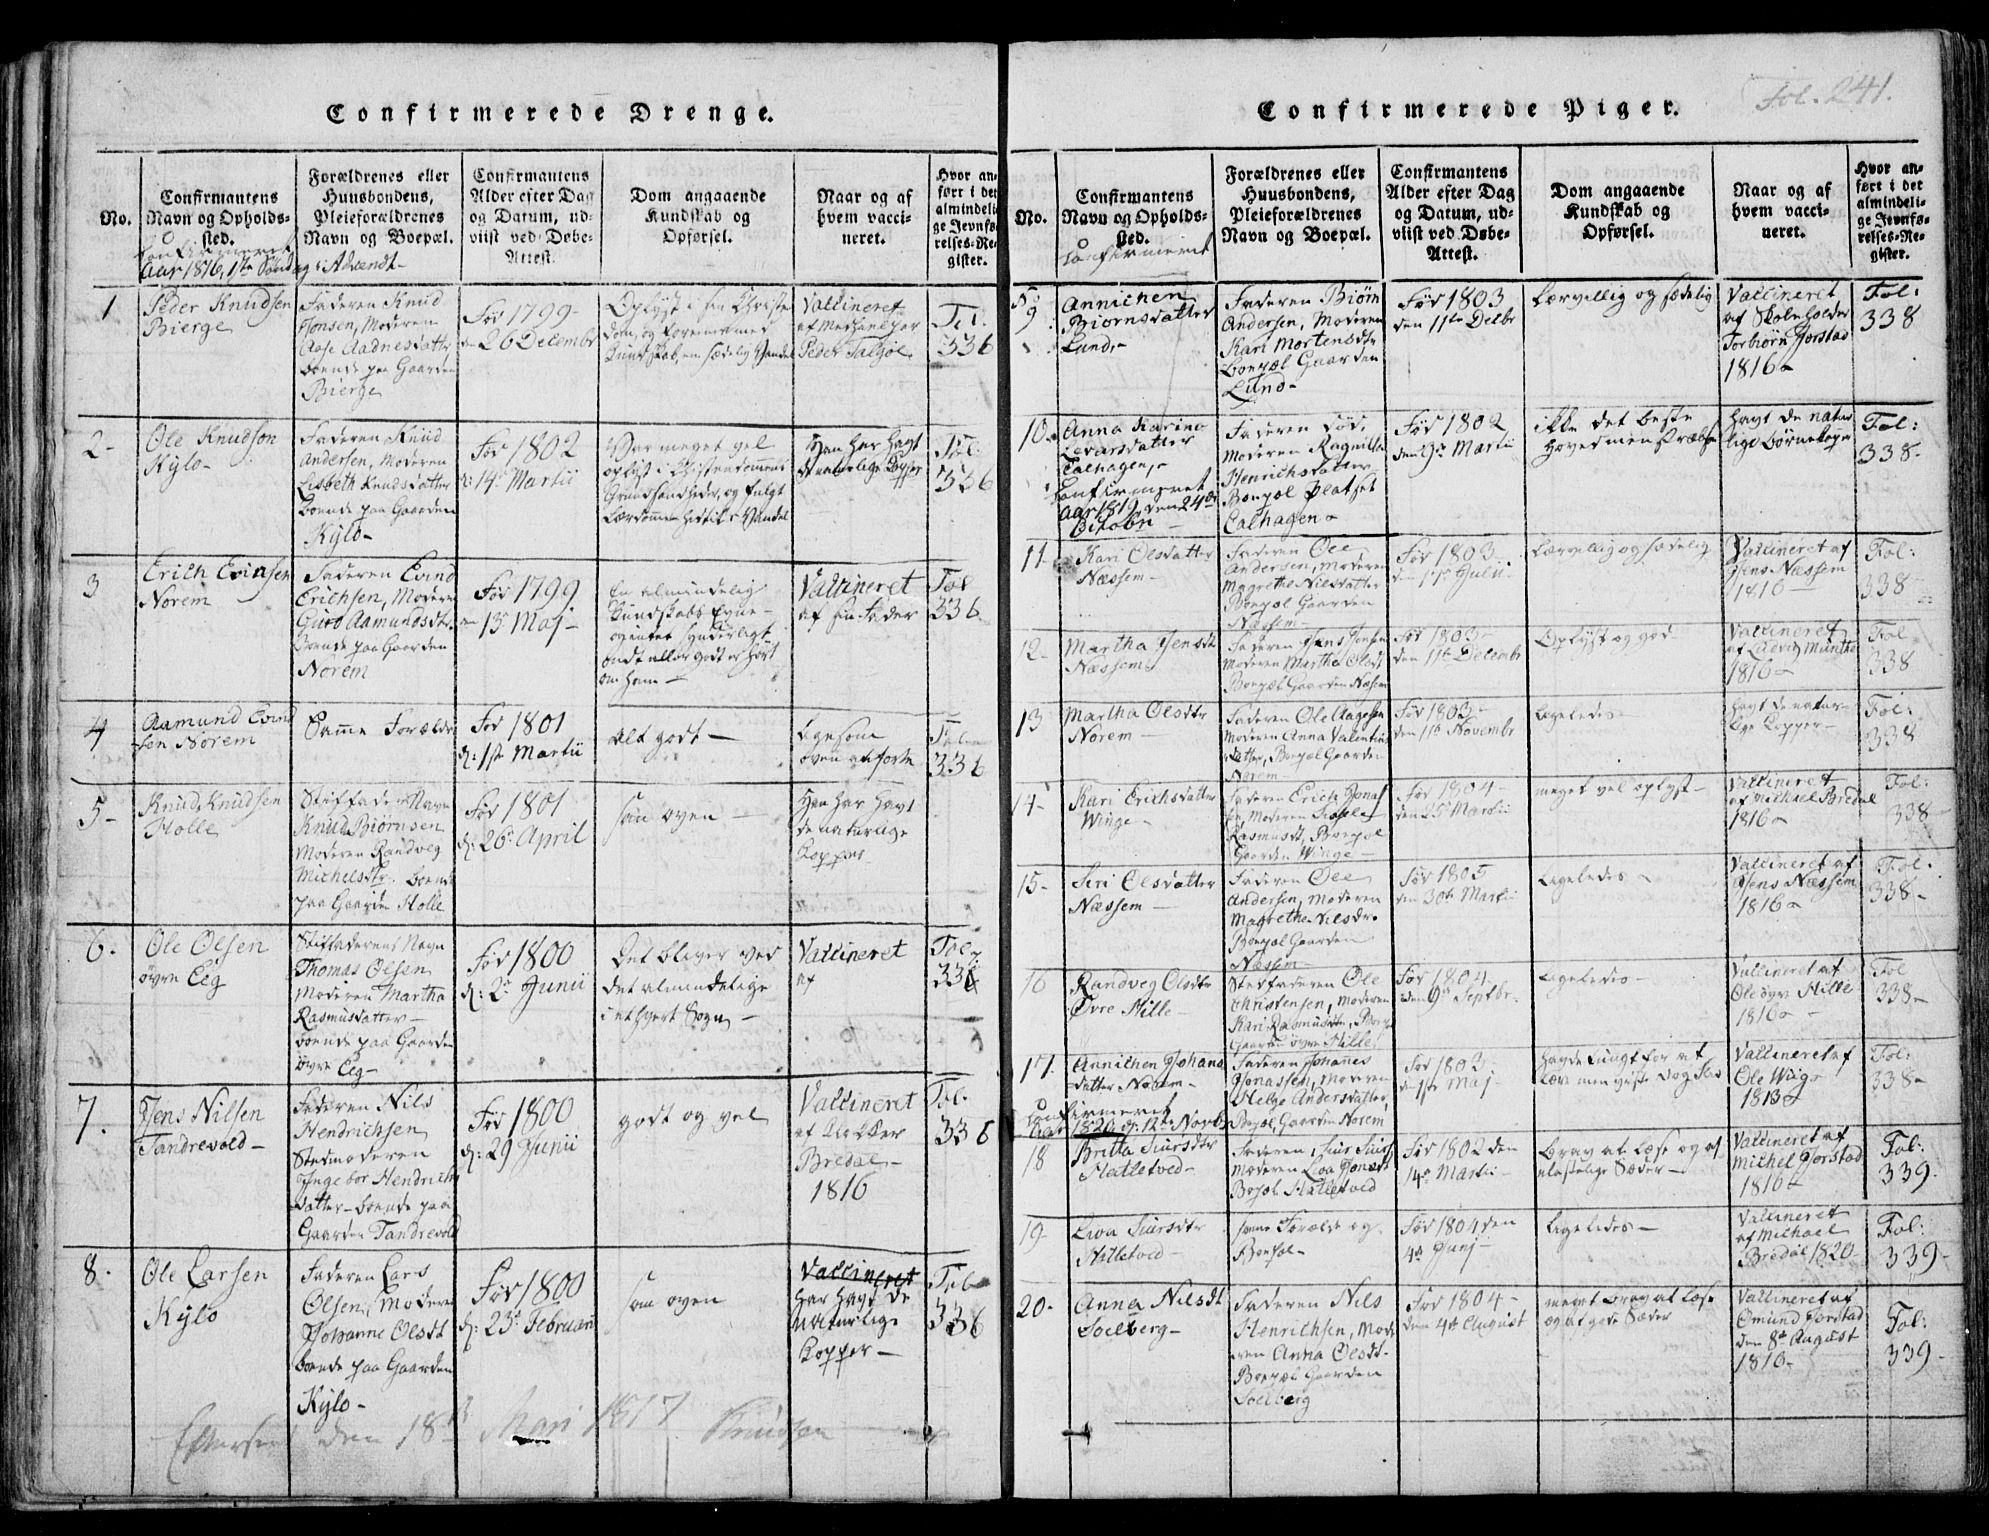 Confirmerede Drenge.
No.
Confirmantens
Navn og Opholds-
sted.
Forældrenes eller
Huusbondens,
Pleieforældrenes
Navn og Boepæl.
Confirmantens
Alder efter Dag
og Datum, ud-
viist ved Døbe-
Attest.
Dom angaaende
Kundskab og
Opførsel.
Naar og af
hvem vacci-
neret.
Hvor an-
ført i det
almindeli-
ge Jevnfø-
relses-Re-
gister.
Confirmeret
Aar 1816, 1ste Søndag i Advendt-
1
Peder Knudsen
Bierge
Faderen Knud
Jonsen, Moderen
Aase Aadnesdatter
boende paa Gaarden
Bierge
Fød 1799-
26 Decembr
Vaccineret
Peder Talgøe
Fol.
336
2-
Ole Knudson
Kylo-
Faderen Knud
Andersen, Moderen
Lisbeth Knudsdatter
boende paa Gaarden
Kylo-
Fød 1802
d: 14de Martii
Han har hagt
de naturlige Copper
Fol.
336
3
Erich Evinsen
Norem
Faderen Evind
Erichsen, Moderen
Guro Aamundsdtr.
Boende paa Gaarden
Norem
Fød 1799
13de Maj-
En almindelig
Kundskabs Evne-
og intet synderligt
ondt eller godt er hørt
om ham-
Vaccineret
af sin Fader
Fol
336
4
Aamund Evind
sen Norem
Samme Forældre
Fød 1801
d: 1ste Martii
Alt godt-
Ligesom
oven anførte
Fol
336
5-
Knud Knudsen
Holle
Stiffaders Navn
Knud Biørnsen
Moderen Randveg
Michelsdtr. boende
paa Gaarden Holle
Fød 1801
d: 26de April
som oven-
Han har havt
de naturlige
Copper
6.
Ole Olsen
øvre Eeg
Stiffaderens Nagn
Thomas Olsen
Moderen Martha
Rasmusdatter-
boende paa Gaarden
øvre Eeg-
Fød 1800
d: 2de Junii
Det bliver ved
det almindelige
i ethvert Sogn-
Vaccineret
af
Fol
336
7.
Jens Nilsen
Tandrevold-
Faderen Nils
Hendrichsen
Stedmoderen
Ingebor Hendrichs
datter- boende paa
Gaarden Tandrevold
Fød 1800
d: 29 Junii
godt og vel
Vaccineret
af Klokker
Bredal-
1816
Fol.
336
8.
Ole Larsen
Kylo
Faderen Lars
Olsen, Moderen
Johanne Olsdt
boende paa Gaarden
Kylo-
Fød 1800
d: 23de Februarii
som oven
Vaccineret
har havt de
naturlige
Copper-
Fol
336
den 18de 1817 Knudsen
Confirmerede Piger.
Fol. 241.
No.
Confirmantens
Navn og Opholds-
sted.
Forældrenes eller
Huusbondens,
Pleieforældrenes
Navn og Boepæl.
Confirmantens
Alder efter Dag
og Datum, ud-
viist ved Døbe-
Attest.
Dom angaaende
Kundskab og
Opførsel.
Naar og af
hvem vacci-
neret.
Hvor an-
ført i det
almindeli-
ge Jevnfø-
relses-Re-
gister.
Confirmeret
No
9
Annichen
Biørnsdatter
Lund-
Faderen Biørn
Andersen, Moderen
Kari Mortensdtr
boepæl Gaarden
Lund-
Fød 1803
den 11te Decbr
Lærvillig og sædelig
Vaccineret
af Skoleholder
Torbiørn Jørstad
1816-
Fol:
338
10
Anna Karina
Levarsdatter
Calhagen,-
Confirmeret
Aar 1819 den 24de
October-
Faderen død,
Moderen Ragnilda
Henrichsdatter
Boepæl Pladset
Calhagen-
Fød 1802
den 9de Martii
ikke det beste
Hoved men stræbsom
Havt de natur
lige børnekoper
Fol:
338-
11-
Kari Olsdatter
Næssem-
Faderen Ole
Andersen, Moderen
Magrethe Nilsdatter
Boepæl Gaarden
Næssem-
Fød 1803-
den 17de Julii
Lærvillig og sædelig
Vaccineret af
Jens Næssem
1816-
Fol:
338
12-
Martha Jensdtr
Næssem
Faderen Jens Jonsen
Moderen Martha Olsdt
Boepæl Gaarden Næssem
Fød 1803-
den 11te Decembr
Oplyst og god-
Vaccineret
af Ludvig Munthe
1816-
Fol
338
13
Martha Olsdtr
Norem-
Faderen Ole Aagesen
Moderen Anna Valentins
datter, Boepæl Gaarden
Norem
Fød 1803-
den 11te Novembr
Ligeledes-
Havt de natur-
lige Copper-
Fol:
338
14-
Kari Erichsdatter
Winge-
Faderen Erich Jonas
sen, Moderen
Rasmusdt, Boepæl
Gaarden Winge-
Fød 1804-
den 25de Martii
meget vel oplyst-
Vaccineret
af Michael Bredal
1816-
Fol:
338-
15-
Siri Olsdatter
Næssem-
Faderen Ole
Andersen, Moderen
Magrethe Nilsdtr.
Boepæl Gaarden
Næssem-
Fød 1805
den 30te Martii
Ligeledes-
Vaccineret af
Jens Næssem
1816-
Fol.
338-
16
Randveg Olsdtr
Øvre Hille-
Stedfaderen Ole
Christensen, Moderen
Kari Rasmusdtr, Boep
Gaarden øvre Hille
Fød 1804
den 9de Septbr.
Ligeledes-
Vaccineret af
Ole øvr Hille
1816-
Fol
338-
17.
Annichen Johans
datter Norem-
Faderen Johanes
Jonassen, Moderen
Helge Andersdatter
Boepæl Gaarden Norem
Fød 1803
den 1ste Maj
Vaccineret af
Ole Wiig
1813-
Fol:
338-
Confirmeret
Aar 1820 d: 12te Novb.
18
Britta Siursdtr
Hatletved-
Faderen Siur Siurs
Moderen Eva Jonsdt
Boepæl Hatletved
Fød 1802 den
14de Martii-
brav at læse og af
ulastelige Sæder-
Vaccineret af
Michel Jørstad
1816-
Fol:
339-
19-
Eva Siursdtr
Hatletved-
samme Forældre og
Boepæl-
Fød 1804 den
4de Junj-
Ligeledes-
Vaccineret
af Michael
Bredal 1820-
Fol:
339-
20-
Anna Nilsdt
Soelberg-
Faderen Nils
Henrichsen, Mode
ren Anna Olsdt-
Boepæl Gaarden
Soelberg
Fød 1804-
den 4de August
meget brav at læse
og af gode Sæder
Vaccineret af
Omund Jørstad
den 8de August
1816-
Fol:
339-